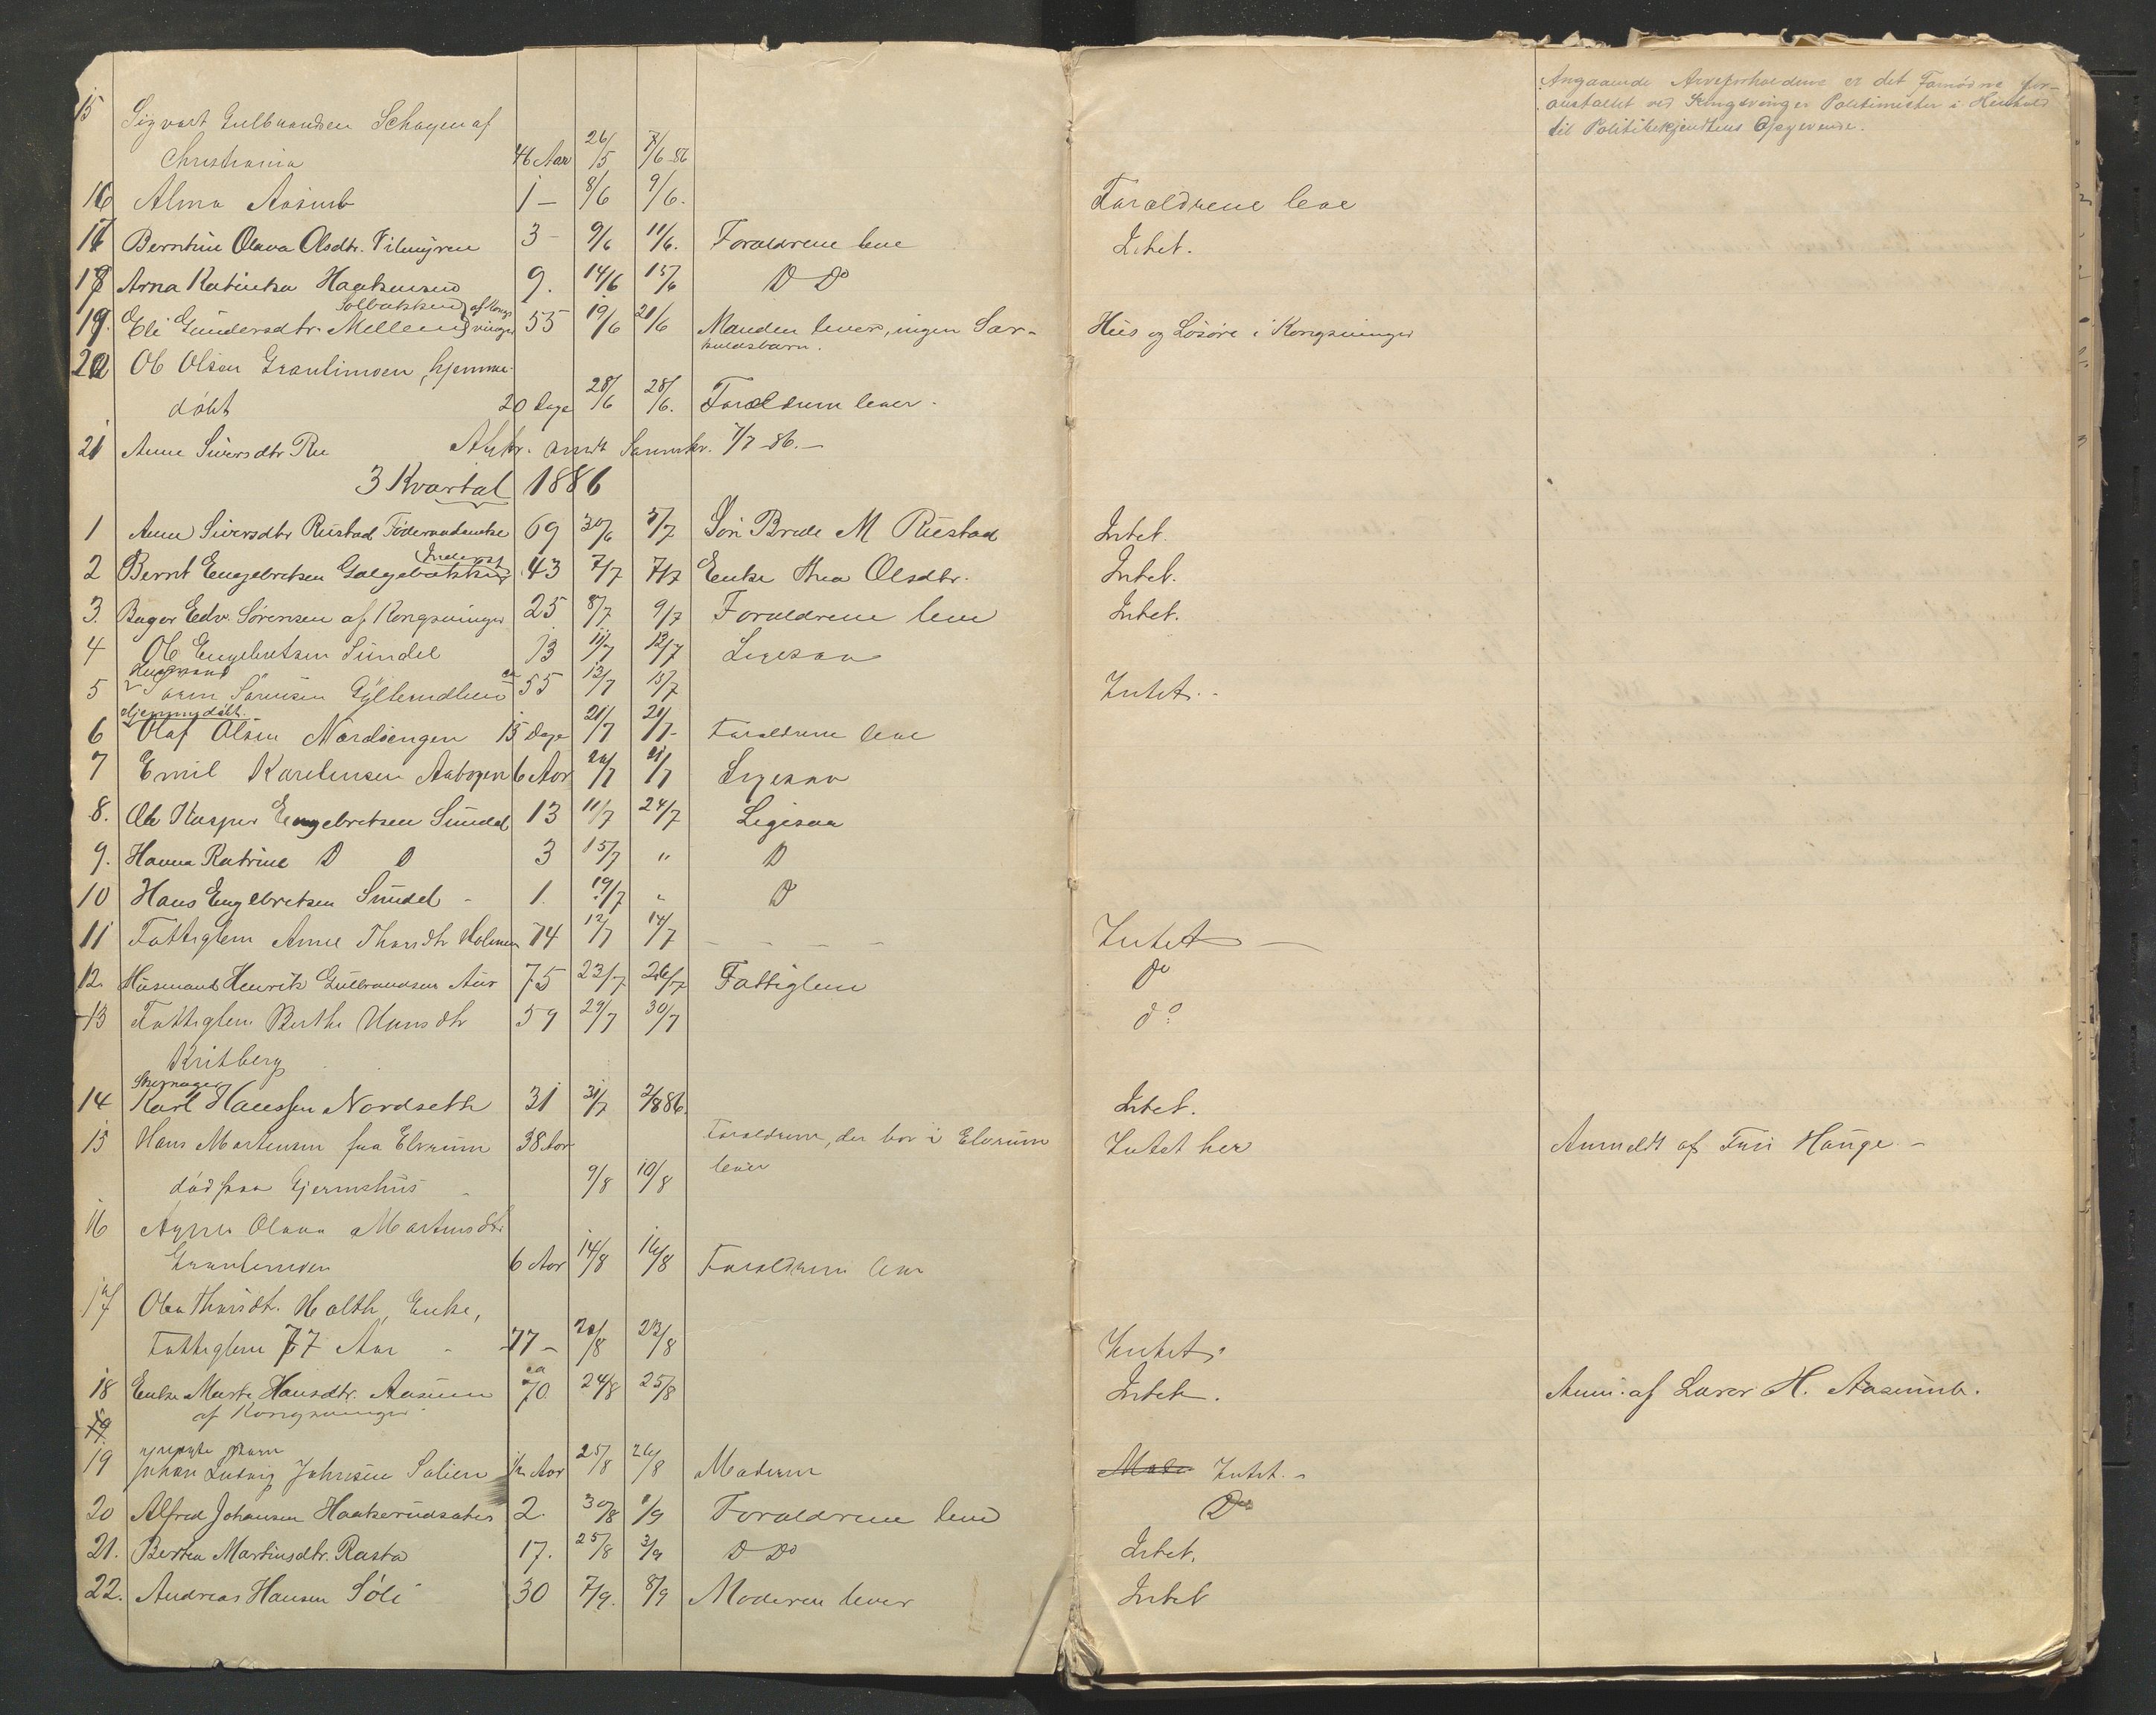 15 Sigvart Gulbrandsen Schøyen af
Christiania 46 Aar 26/5 7/6 86
Angaaende Arveforholdene er det Fornødne for-
anstaltet ved Kongsvinger Politimester i Henhold
til Politibekjendtens Opgivende.
16 Alma Aasum 1 – 8/6 9/6. Forældrene leve
17 Berntine Olava Olsdtr. 3 – 9/6 11/6. Forældrene leve Intet.
18 Arna Katinka Haakensen 9. 14/6 15/6 D Do
Solbakken af Kongs-
19. Eli Gundersdtr. Mellem vinger 55 19/6 21/6 Manden lever, ingen Sær- Huus og Løsøre i Kongsvinger
kuldsbarn.
20 Ole Olsen Granlimoen, hjemme-
døbt 20 Dage 28/6 28/6. Forældrene lever.
21 Anne Siversdtr Ru 7/7 – 86. –
3 Kvartal 1886
1 Anne Siversdtr Rustad Føderaadsenke 69 30/6 5/7 Søn Brede M Rustad Intet.
Inderst
2 Bernt Engebretsen Galgebakken 43 7/7 7/7 Enke Thea Olsdtr. Intet.
3. Bager Edv. Sørensen af Kongsvinger 25 8/7 9/7 Forældrene leve Intet.
4 Ole Engebretsen Sundel 13 11/7 12/7 Ligesaa
Husmand
5 Søren Sørensen ca 55 12/7 15/7 Intet. -
Hjemmedøbt.
6 Olaf Olsen Nordsengen 15 Dage 21/7 21/7 - Forældrene leve
7 Emil Karelinsen Aabogen 6 Aar 20/7 21/7 Ligesaa
8. Ole Kasper Engebretsen Sundel 13 11/7 24/7 Ligesaa
9. Hanna Katrine D D 3 15/7 " D
10 Hans Engelbretsen Sundel - 1. 19/7 " D
11 Fattiglem Anne Thorsdtr Holmen 74 12/7 14/7 – – – – Intet –
12. Husmand Henrik Gulbrandsen Aur 75 23/7 26/7 Fattiglem Do
13 Fattiglem Berthe Hansdtr 59 29/7 30/7 do
Kritberg
Skomager
14 Karl Hanssen Nordseth 31 31/7 2/8 86. Intet.
15 Hans Martinsen fra Elverum 38 Aar Forældrene, der bor i Elverum Intet her Anmeldt af Hauge. –
død paa Gjermshus 9/8 10/8 lever
16 Agnes Olava Martinsdtr
Granlimoen 6 Aar 14/8 16/8 Forældrene leve
17 Olea Thorsdt. Holth, Enke,
Fattiglem 77 Aar - 77 – 20/8 23/8 Intet.
18 Enke Marte Hansdtr. Aasum ca 70. 24/8 25/8 Intet. Anm. af Lærer H. Aasum.
af Kongsvinger
19.
uægte Barn
19 Johan Ludvig Johnsen Solien 1/2 Aar 25/8 26/8 Moderen Mode Intet. –
20 Alfred Johansen Haakerudsæter 2. 30/8 1/9 Forældrene leve Do
21. Bertea Martinsdtr. Rasta 17. 25/8 3/9 D Do Intet.
22. Andreas Hansen Søli 30 7/9. 8/9 Moderen lever Intet